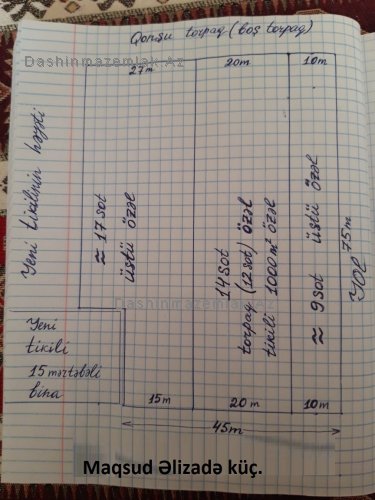 Qonşu torpaq (boş torpaq)
Dashinmazemlak.Az
27m
20m
10m
Yeni tikilinin həyəti
≈ 17 sot
üstü özəl
14 sot
torpaq (12 sot) özəl
tikili 1000 m² özəl
≈ 9 sot üstü özəl
75m
YOL
Dashinmazemlak.Az
Yeni
tikili
15 mərtəbəli
bina
15m
20m
10m
45m
Maqsud Əlizadə küç.